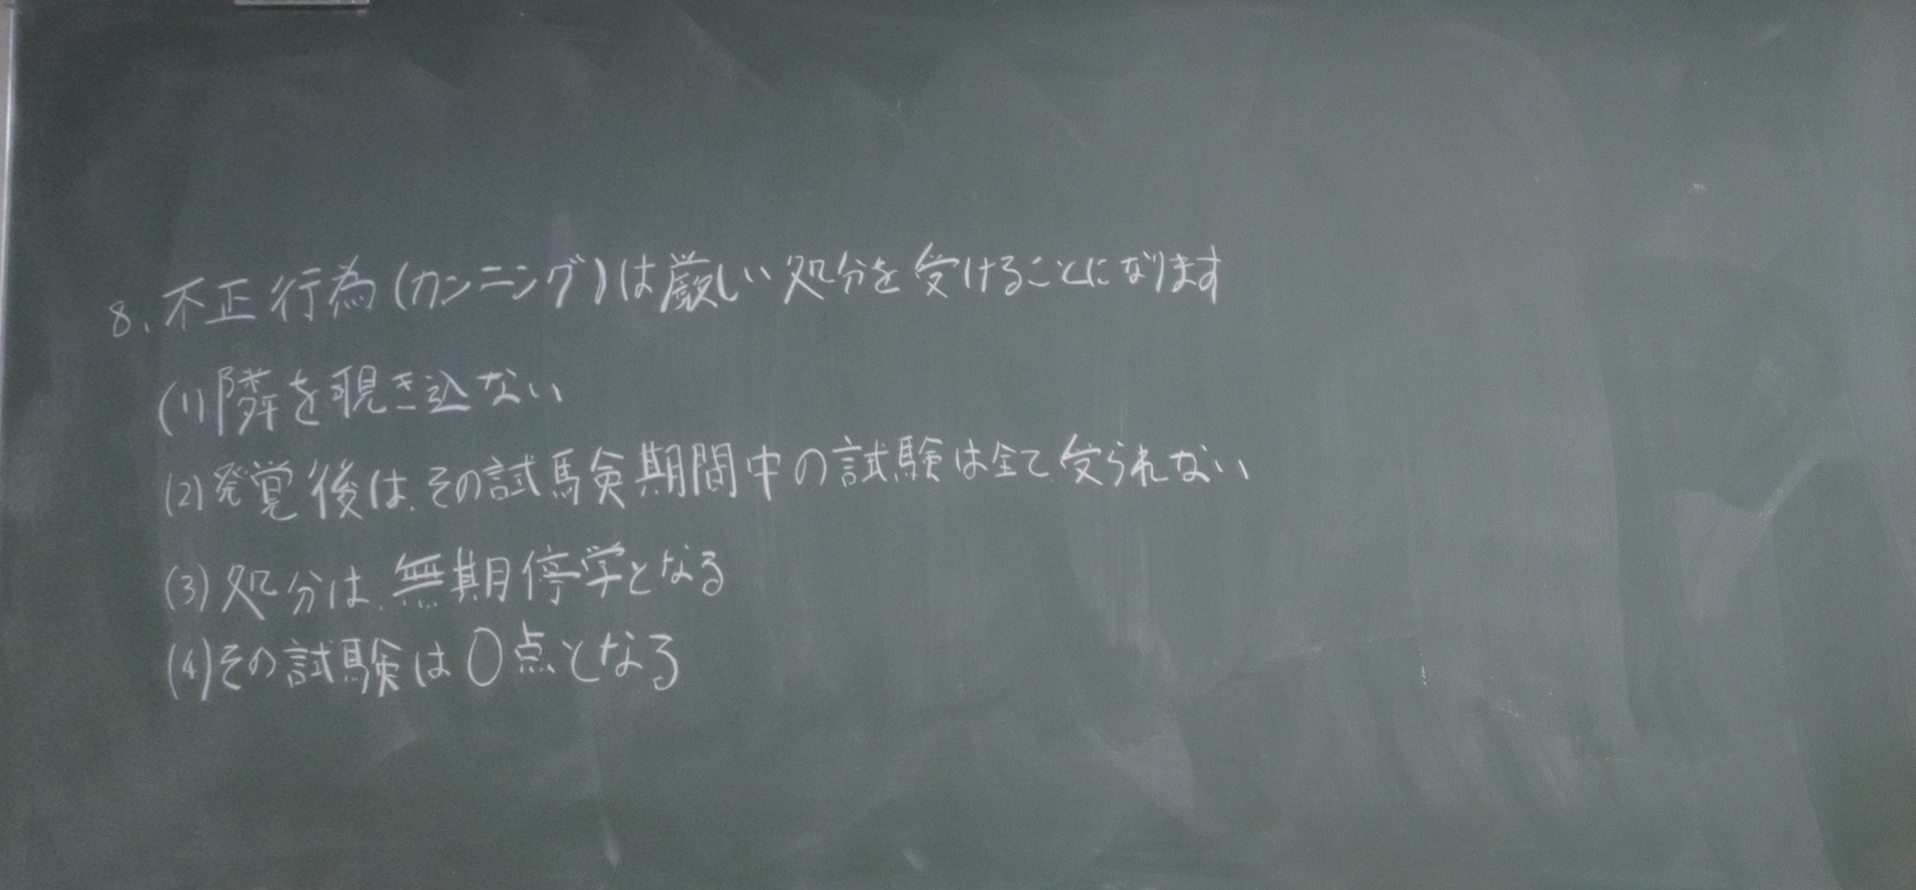 8、不正行為(カンニング)は厳しい処分を受けることになります
(1)隣を覗き込ない
(2)発覚後は、その試験期間中の試験は全て受られない
(3)処分は、無期停学となる
(4)その試験は0点となる